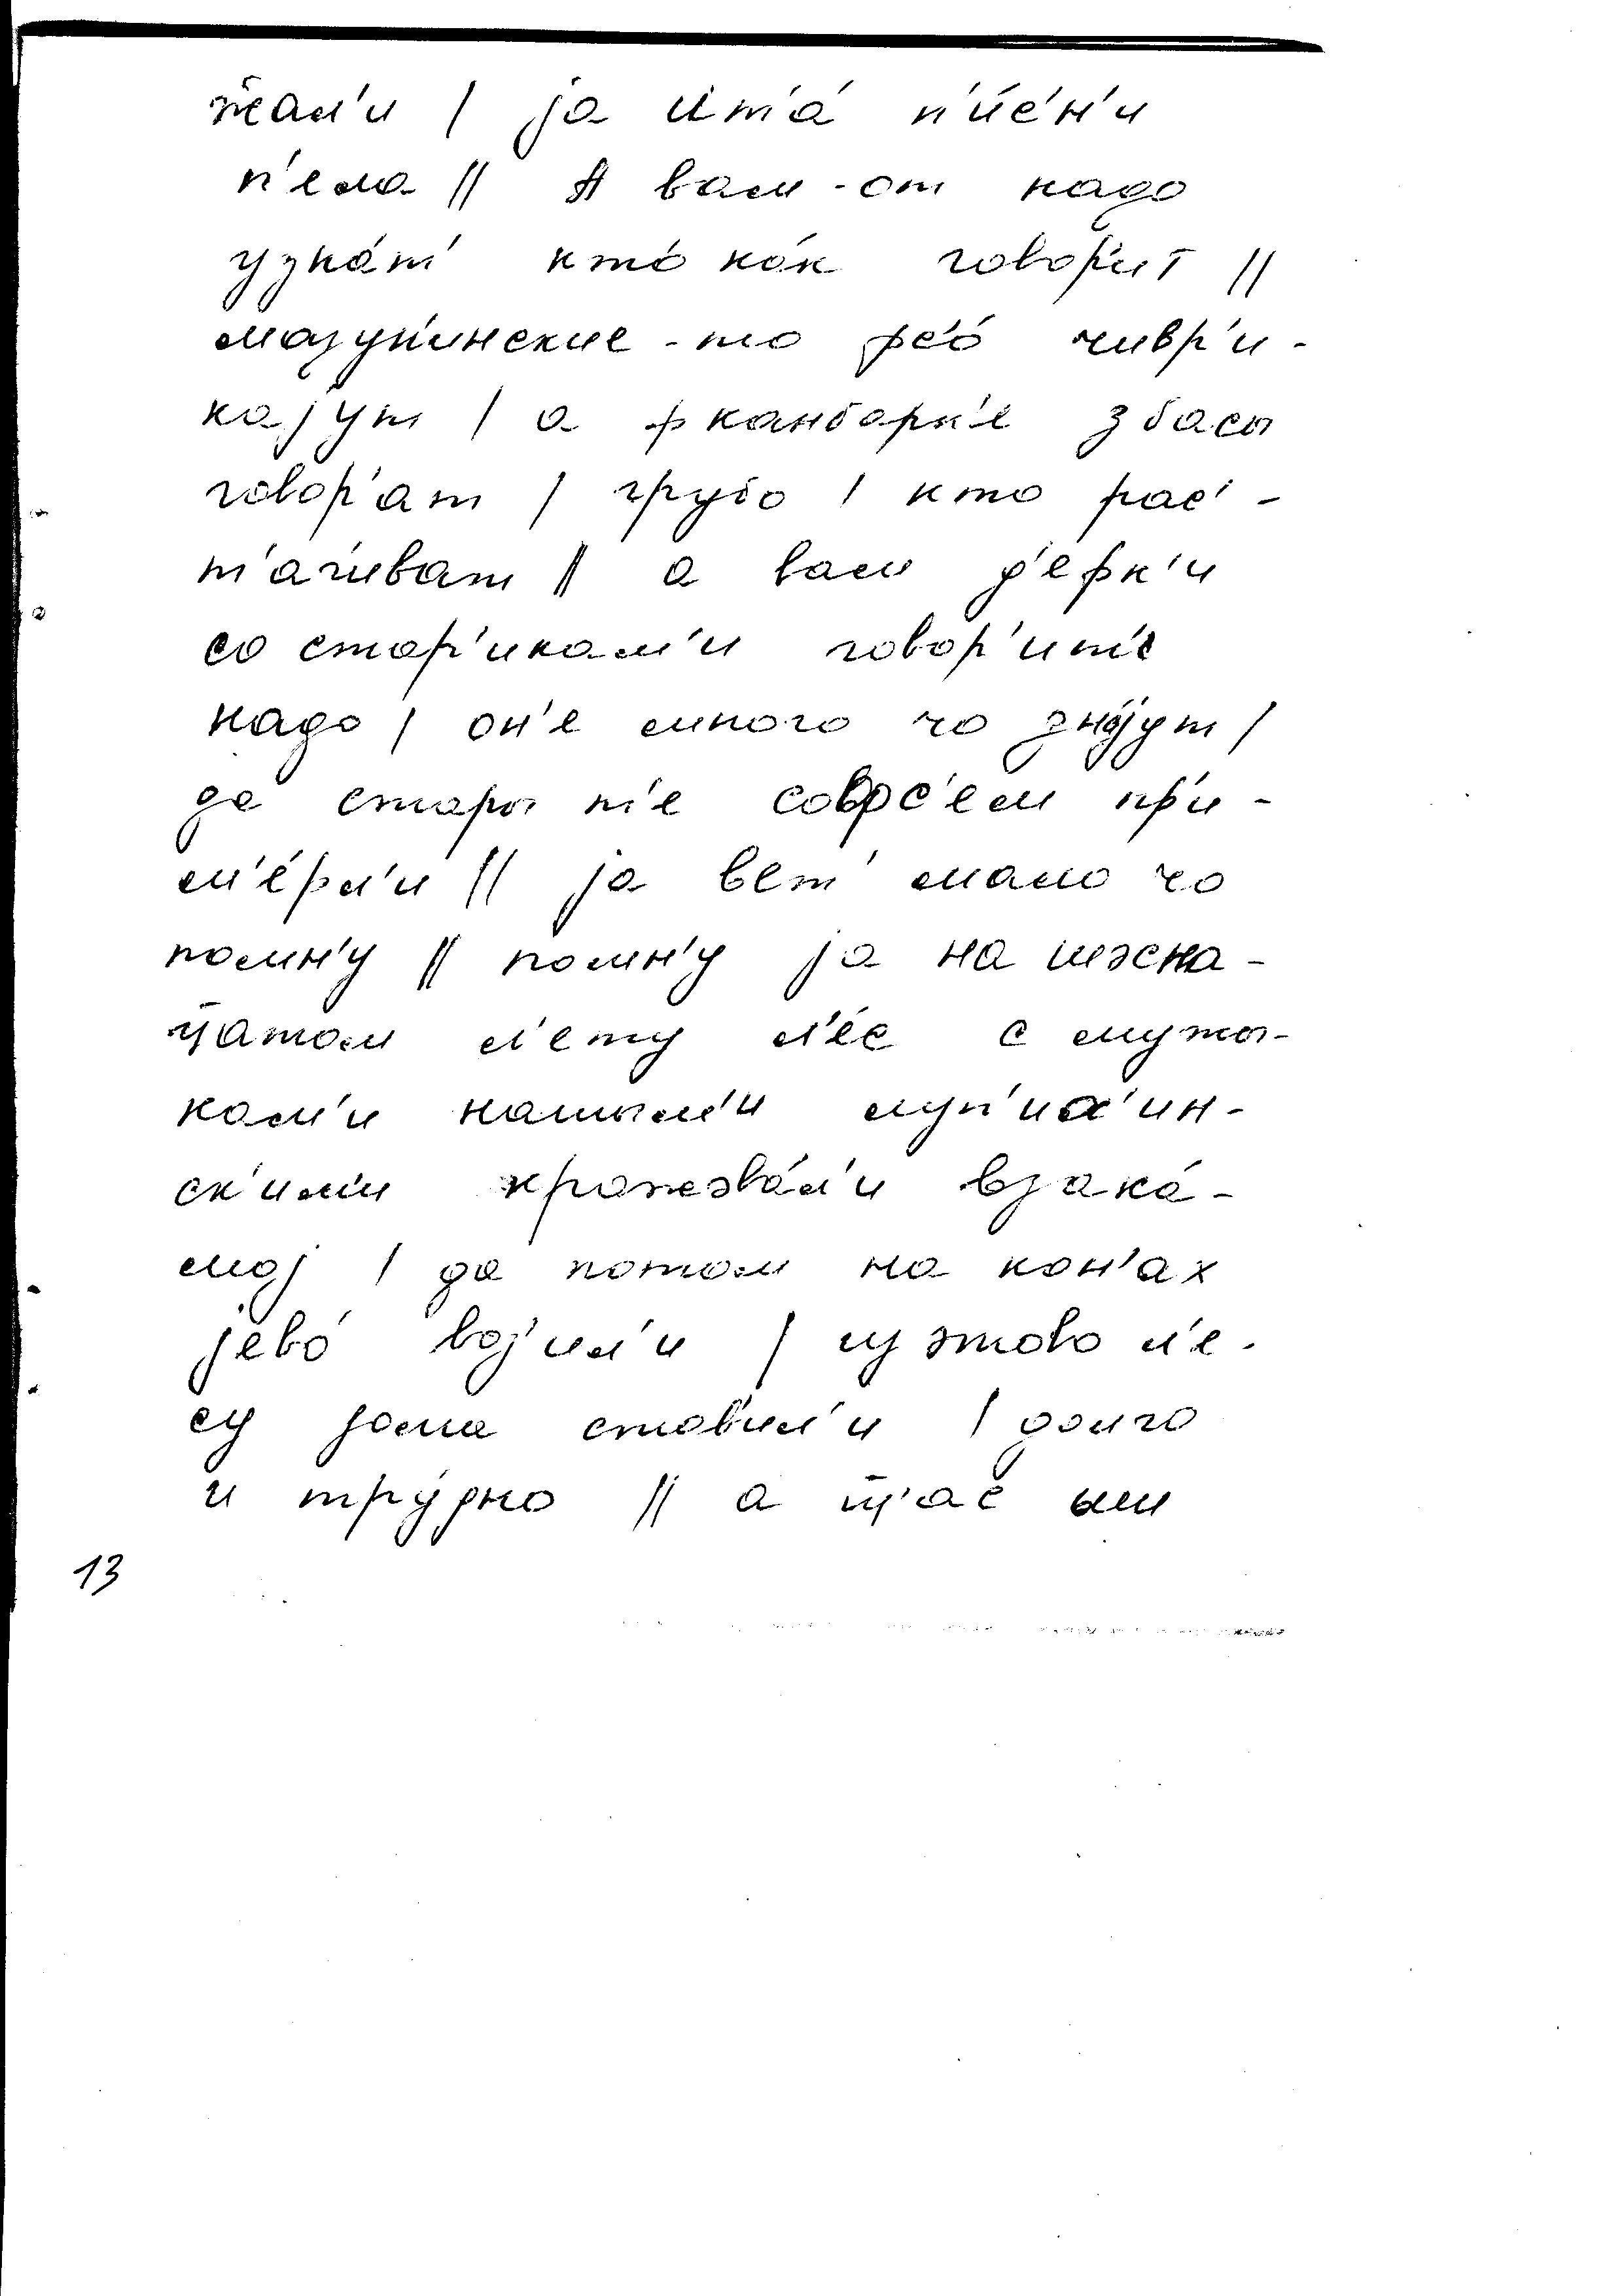 жал'и | jа итá п'йéн'и
п'ела || А вам-от надо
узнáт' ктó кáк говор'ит ||
мазун'инские-то фс'ó чивр'и-
кajут | а ф канбарк'е з басы
говор'ат | грубо | кто рас'-
т'аг'иват || а вам д'ефк'и
со стар'икам'и говор'ит'е
надо | он'е много чо знájут |
да стары т'е совфс'ем пр'и-
м'éрл'и || jа вет' мало чо
помн'у || помн'у jа на шэсна-
цатом л'ету л'éс с мужы-
кам'и нашым'и
ск'им'и кражэвáл'и в зака-
моj | да потом на кон'ах
jевó воз'ил'и | из этово л'е-
су дома ставил'и | долго
и трýдно || а щ'ас им
13